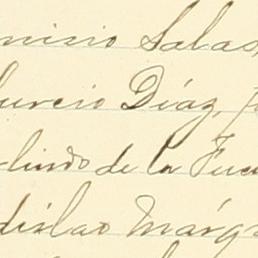 nisio Salas,
burcio Díaz, J
lindo de la Fue
dislao Márq